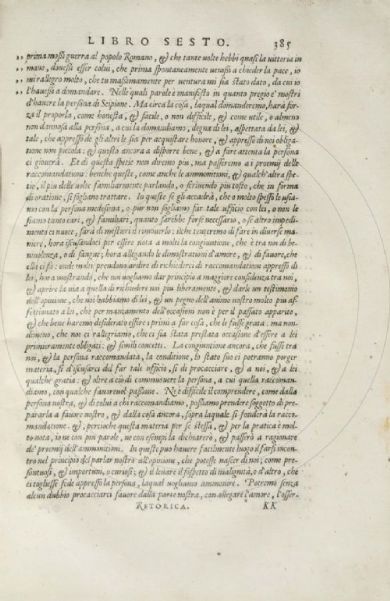 LIBRO SESTO. 385
„ prima mossi guerra al popolo Romano, & che tante volte hebbi quasi la vittoria in
„ mano, dovessi esser colui, che prima spontaneamente venissi a chieder la pace, io
„ mi rallegro molto, che tu massimamente per ventura mi sia stato dato, da cui io
„ l'havessi a domandare. Nelle quali parole è manifesto in quanto pregio e' mostri
d'havere la persona di Scipione. Ma circa la cosa, laqual domanderemo, harà for-
za il proporla, come honesta, & facile, o non difficile, & come utile, o almeno
non dannosa alla persona, a cui la domandiamo, degna di lei, aspettata da lei, &
tale, che appresso de gli altri le sia per acquistare honore, & appresso di noi obliga-
tione non piccola: & questo ancora a disporre bene, & a fare attenta la persona
ci gioverà. Et di questa spetie non diremo piu, ma passeremo ai proemij delle
raccomandationi: benche queste, come anche le ammonitioni, & qualch'altra spe-
tie, il piu delle volte familiarmente parlando, o scrivendo piu tosto, che in forma
di oratione, si sogliono trattare. In queste se gli accadrà, che o molto spesso le usia-
mo con la persona medesima, o pur non sogliamo far tale ufficio con lei, o non le
siamo tanto cari, & familiari, quanto sarebbe forse necessario, o se altro impedi-
mento ci nuoce, farà di mestieri il rimoverlo: ilche tenteremo di fare in diverse ma-
niere, hora iscusandoci per essere nota a molti la congiuntione, che è tra noi di be-
nivolenza, o di sangue; hora allegando le dimostrationi d'amore, & di favore, che
ella ci fa: onde molti prendono ardire di richiederci di raccomandationi appresso di
lei, hora mostrando, che noi vogliamo dar principio a maggiore confidenza tra noi,
& aprire la via a quella di richiedere noi piu liberamente, & darle un testimonio
dell'opinione, che noi habbiamo di lei, & un pegno dell'animo nostro molto piu af-
fettionato a lei, che per mancamento dell'occasioni non è per il passato apparito,
& che bene haremo desiderato essere i primi a far cosa, che le fusse grata: ma non-
dimeno, che noi ci rallegriamo, che ci sia stata prestata occasione d'essere a lei
primieramente obligati: & simili concetti. La congiuntione ancora, che fusse tra
noi, & la persona raccomandata, la conditione, lo stato suo ci potranno porger
materia, sì d'iscusarci del far tale ufficio, sì di procacciare, & a noi, & a lei
qualche gratia: & oltre a ciò di commuovere la persona, a cui quella raccoman-
diamo, con qualche favorevol passione. Nè è difficile il comprendere, come dalla
persona nostra, & di colui a chi raccomandiamo, possiamo prender soggetto di pre-
pararla a favore nostro, & dalla cosa ancora, sopra laquale si fonderà la racco-
mandatione. &, percioche questa materia per se stessa, & per la pratica è mol-
to nota, io ne con piu parole, ne con esempi la dichiarerò, & passerò a ragionare
de' proemij dell'ammonitioni. In queste può havere facilmente luogo il farsi incon-
tro nel principio del parlar nostro all'opinione, che potesse nascer di noi; come pre-
sontuosi, & importuni, o curiosi; & il levare il sospetto di malignità, o d'altro, che
ci togliesse fede appresso la persona, laqual vogliamo ammonire. Potremo senza
alcun dubbio procacciarci favore dalla parte nostra, con allegare l'amore, l'osser-
RETORICA. KK